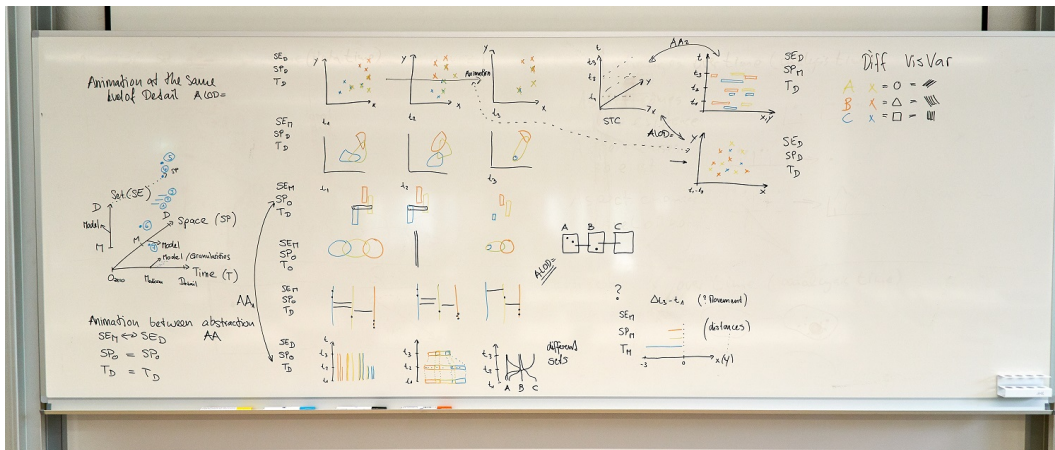 Animation at the same
level of Detail ALOD=
Set (SE)
D
Model
M
Space (SP)
D
M
Model
Model / Granularities
Time (T)
Medium
Detail
Animation between abstraction
AA
SEM ↔ SED
SP0 = SP0
TD = TD
SED
SPD
TD
y
x
t1
y
x
t2
Animation
y
x
t3
SEM
SPD
TD
t1
t2
t3
SEM
SP0
TD
SEM
SP0
T0
SEM
SP0
TD
SED
SP0
TD
t3
t2
t1
t3
t2
t1
A B C
different
sets
AA1
t
t3
t2
t1
y
x
STC
AA2
t
t3
t2
t1
x,y
SED
SPM
TD
ALOD=
y
x
t1-t3
SED
SPD
TD
A B C
ALOD=
?
Δt3-t1 (? Movement)
SEM
SPM
TM
(distances)
-3 0 x(y)
Diff VisVar
A x = O =
B x = △ =
C x = □ =